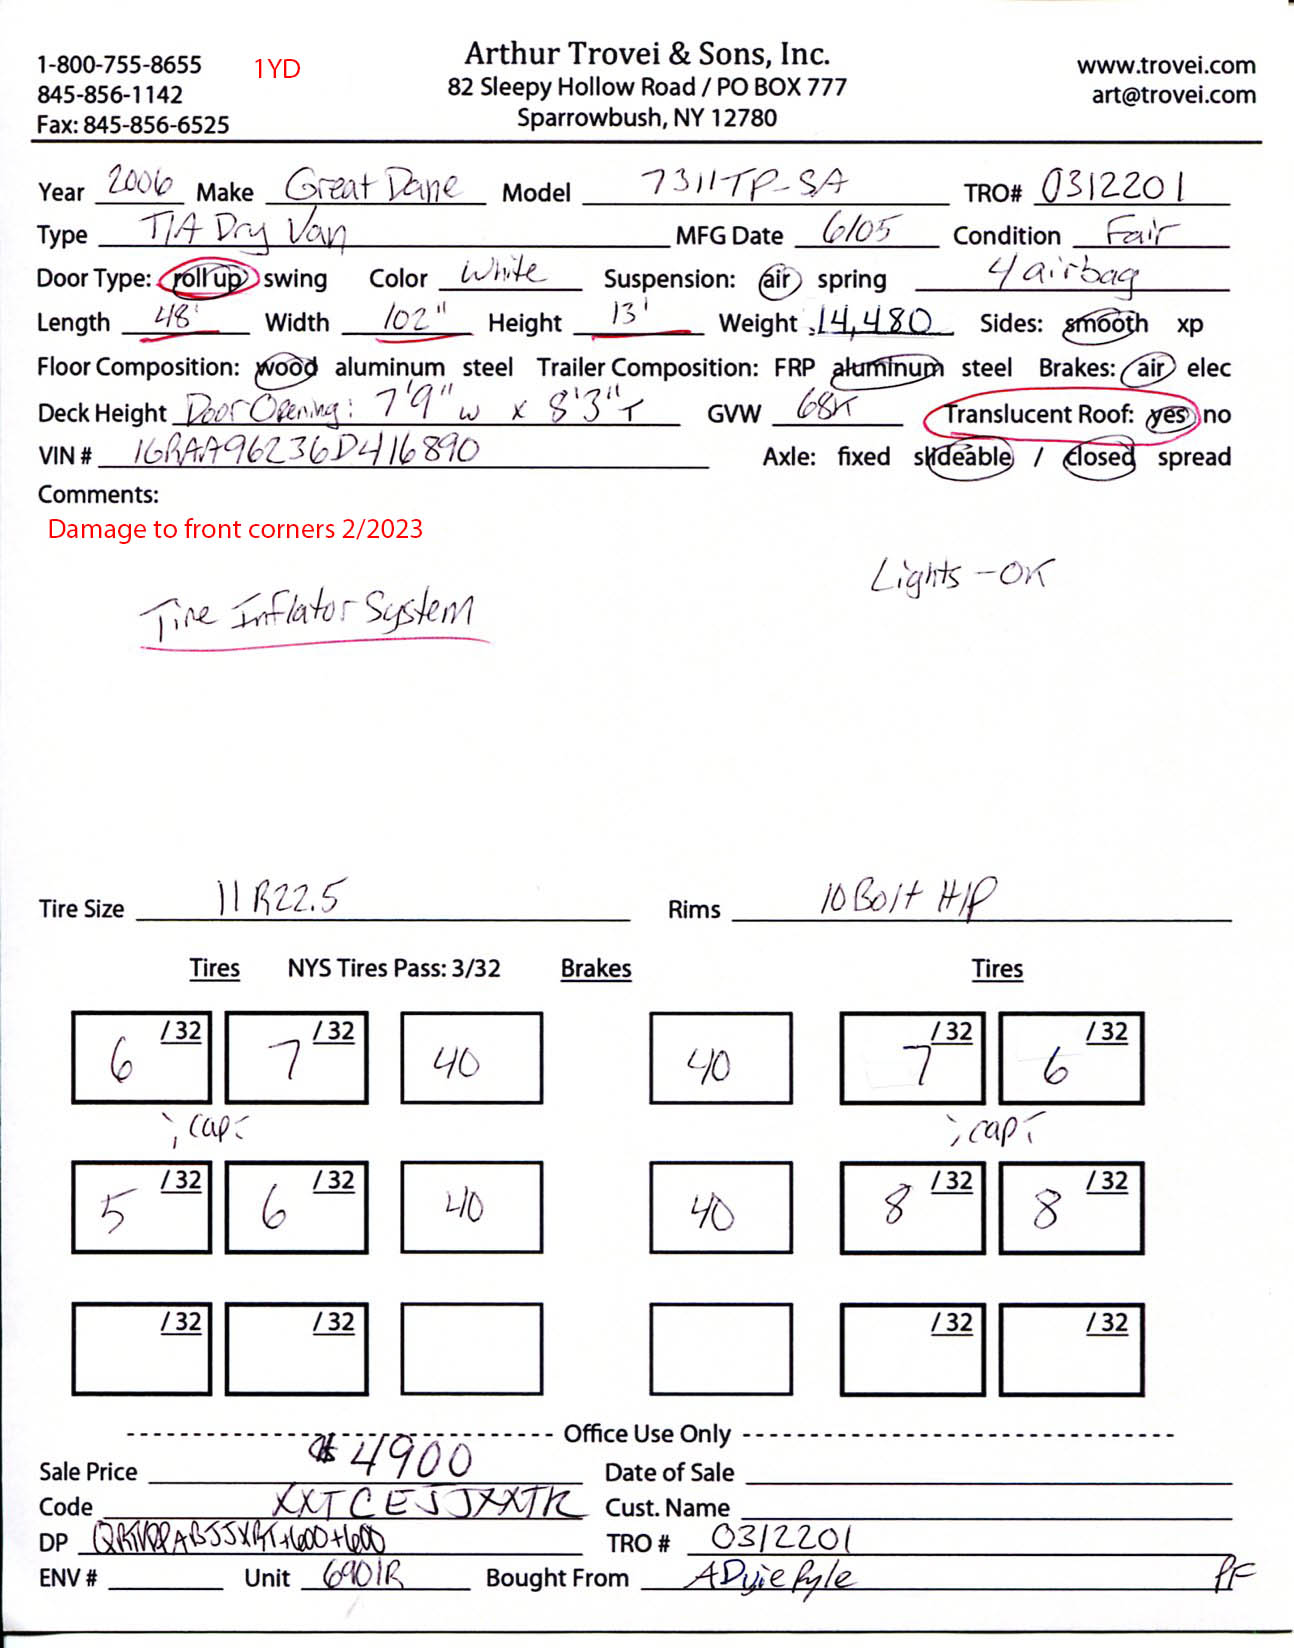 1-800-755-8655 1YD Arthur Trovei & Sons, Inc. www.trovei.com
845-856-1142 82 Sleepy Hollow Road / PO BOX 777 art@trovei.com
Fax: 845-856-6525 Sparrowbush, NY 12780
Year 2006 Make Great Dane Model 7311TP-SA TRO# 0312201
Type T/A Dry Van MFG Date 6/05 Condition Fair
Door Type: roll up swing Color White Suspension: air spring 4 airbag
Length 48' Width 102" Height 13' Weight 14,480 Sides: smooth xp
Floor Composition: wood aluminum steel Trailer Composition: FRP aluminum steel Brakes: air elec
Deck Height Door Opening: 7'9" W x 8'3" T GVW 68K Translucent Roof: yes no
VIN # 1GRAA96236D416890 Axle: fixed slideable / closed spread
Comments:
Damage to front corners 2/2023
Lights - OK
Tire Inflator System
Tire Size 11R22.5 Rims 10 Bolt H/P
Tires NYS Tires Pass: 3/32 Brakes Tires
6 /32 7 /32 40 40 7 /32 6 /32
; cap ; cap
5 /32 6 /32 40 40 8 /32 8 /32
/32 /32 /32 /32
Office Use Only
Sale Price $4900 Date of Sale
Code XXTCESJXXTK Cust. Name
DP +600+600 TRO # 0312201
ENV # Unit 6901R Bought From Pyle PF